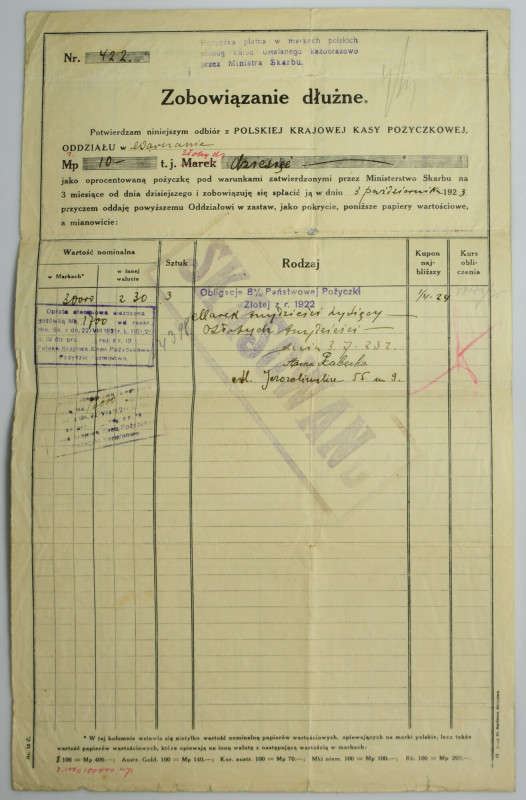 Pożyczka płatna w markach polskich
podług kursu ustalanego każdorazowo
przez Ministra Skarbu.
Nr. 422.
Zobowiązanie dłużne.
Potwierdzam niniejszym odbiór z POLSKIEJ KRAJOWEJ KASY POŻYCZKOWEJ,
ODDZIAŁU w Warszawie
złotych
Mp 10- t. j. Marek dziesięć
jako oprocentowaną pożyczkę pod warunkami zatwierdzonymi przez Ministerstwo Skarbu na
3 miesiące od dnia dzisiejszego i zobowiązuję się spłacić ją w dniu 3 października 1923
przyczem oddaję powyższemu Oddziałowi w zastaw, jako pokrycie, poniższe papiery wartościowe,
a mianowicie:
Wartość nominalna
w Markach*
w innej walucie
Sztuk
Rodzaj
Kupon najbliższy
Kurs obliczenia
30000 z 30 3 Obligacje 8% Państwowej Pożyczki 1/4-24
Złotej z r. 1922
Marek trzydzieści tysięcy
Złotych trzydzieści
dnia 3.7.23 r.
Żabicka
Jerozolimskie 55 m 9.
Opłata stemplowa uiszczona
gotówką Mk. 1700
Polska Krajowa Kasa Pożyczkowa
* W tej kolumnie wstawia się nietylko wartość nominalną papierów wartościowych, opiewających na marki polskie, lecz także
wartość papierów wartościowych, które opiewają na inną walutę z następującą wartością w markach:
100 = Mp 400.—; Austr. Gold. 100 = Mp 140.—; Kor. austr. 100 = Mp 70.—; Mki niem. 100 = Mp 100.—; Rb. 100 = Mp 200.—